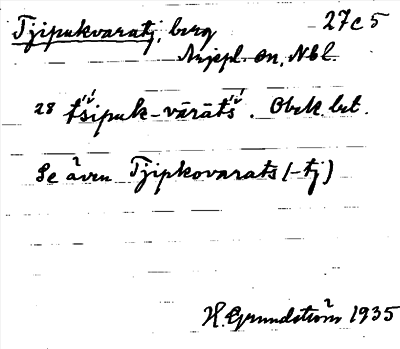 Tjipukvaratj, berg 27c5
Arjepl. sn, Nbl.
28 tśi̓puk-vārātś . Obek. bet.
Se även Tjipkovarats (-tj)
H. Grundström 1935